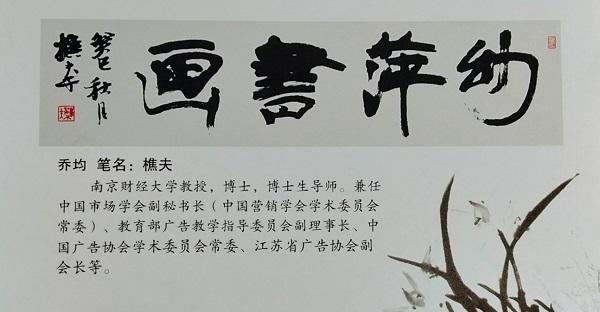 幼萍書画
癸巳秋月
樵夫
乔均 笔名：樵夫
南京财经大学教授，博士，博士生导师。兼任
中国市场学会副秘书长（中国营销学会学术委员会
常委）、教育部广告教学指导委员会副理事长、中
国广告协会学术委员会常委、江苏省广告协会副
会长等。